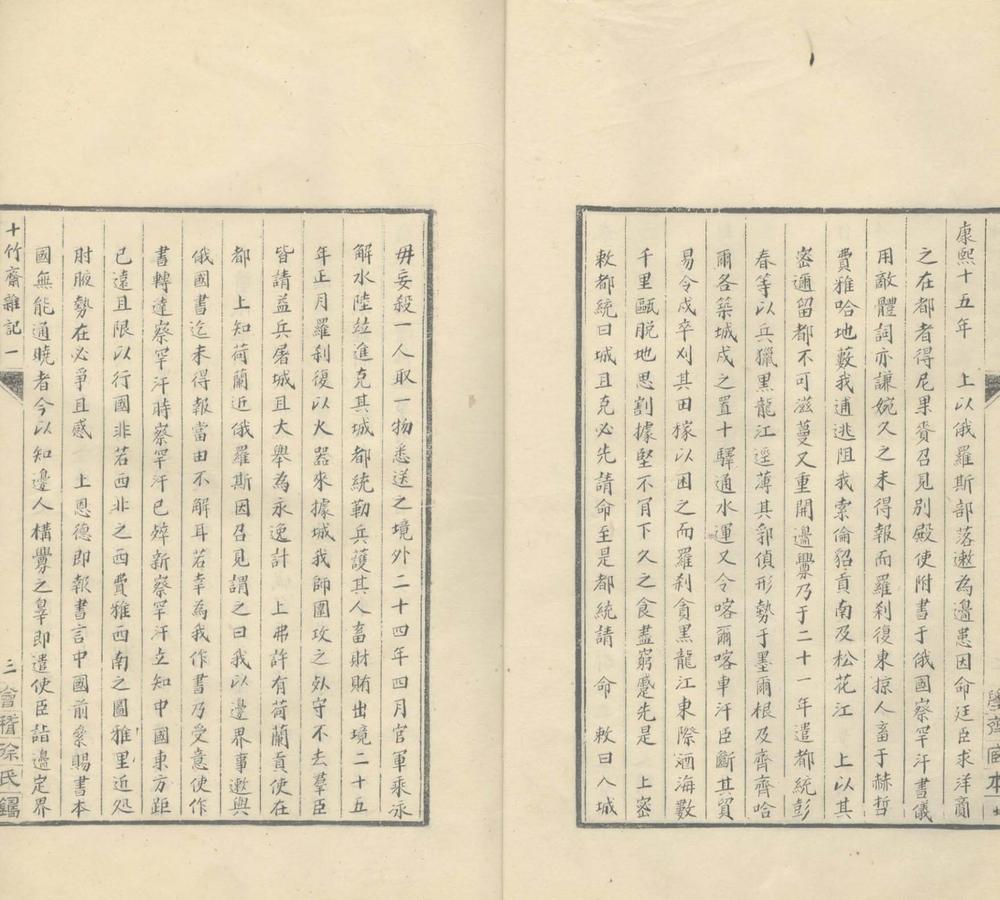 康熙十五年　上以俄羅斯部落遬為邊患因命廷臣求洋商
之在都者得尼果賚召見別殿使附書于俄國察罕汗書儀
用敵體詞亦謙婉久之未得報而羅刹復東掠人畜于赫哲
費雅哈地藪我逋逃阻我索倫貂貢南及松花江　上以其
密邇留都不可滋蔓又重開邊釁乃于二十一年遣都統彭
春等以兵獵黑龍江逕薄其郛偵形勢于墨爾根及齊齊哈
爾各築城戍之置十驛通水運又令喀爾喀車汗臣斷其貿
易令戍卒刈其田稼以困之而羅刹貪黑龍江東際洒海數
千里甌脫地思割據堅不肯下久之食盡窮蹙先是　上密
敕都統曰城且克必先請命至是都統請　命　敕曰入城
毋妄殺一人取一物悉送之境外二十四年四月官軍乘冰
解水陸竝進克其城都統勒兵護其人畜財賄出境二十五
年正月羅刹復以火器來據城我師圍攻之死守不去羣臣
皆請益兵屠城且大舉為永逸計　上弗許有荷蘭貢使在
都　上知荷蘭近俄羅斯因召見謂之曰我以邊界事遬與
俄國書迄未得報當由不解耳若幸為我作書乃受意使作
書轉達察罕汗時察罕汗已殂新察罕汗立知中國東方距
已遠且限以行國非若西北之西費雅西南之圖雅里近処
肘腋勢在必爭且感　上恩德即報書言中國前絫賜書本
國無能通曉者今以知邊人構釁之辠即遣使臣詣邊定界
十竹齋雜記一
三　會稽徐氏鑄
學齋